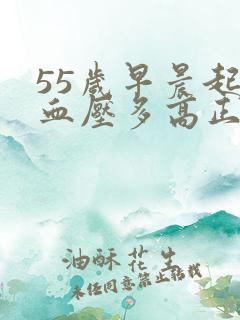 55歲早晨起
血壓多高正
油酥花生
未经同意禁止转载